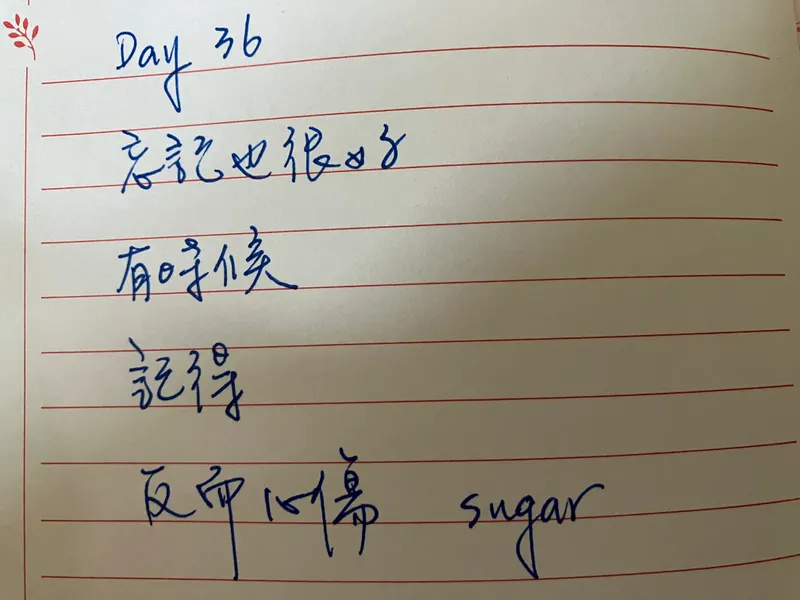 Day 36
忘記也很好
有時候
記得
反而心傷 sugar